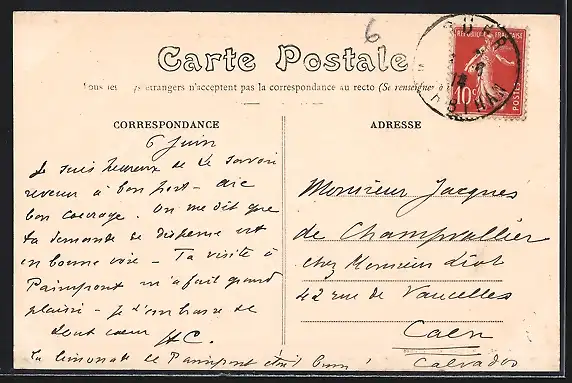 6
Carte Postale
Tous les pays étrangers n'acceptent pas la correspondance au recto (Se renseigner à
RÉPUBLIQUE FRANÇAISE
10c
POSTES
CORRESPONDANCE
ADRESSE
6 Juin
Je suis heureux de te savoir
revenu à bon port - aie
bon courage. On me dit que
ta demande de dispense est
en bonne voie - Ta visite à
Paimpont m'a fait grand
plaisir - je t'embrasse de
tout cœur HC.
la limonade de Paimpont était bonne !
Monsieur Jacques
de Champvallier
chez Monsieur
42 rue de Vaucelles
Caen
Calvados